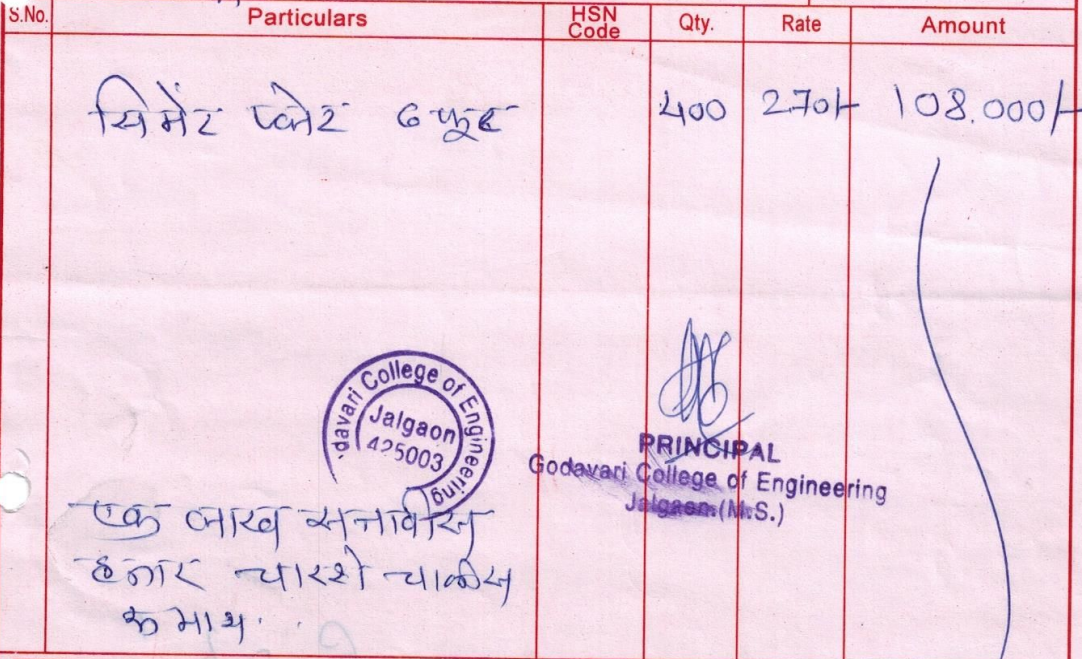 S.No. Particulars HSN Code Qty. Rate Amount
सिमेंट प्लेट 6 फूट 400 270/- 108.000/-
davari College of Engineering
Jalgaon
425003
PRINCIPAL
Godavari College of Engineering
Jalgaon (M.S.)
एक लाख सत्तावीस
हजार चारशे चाळीस
रु मात्र.